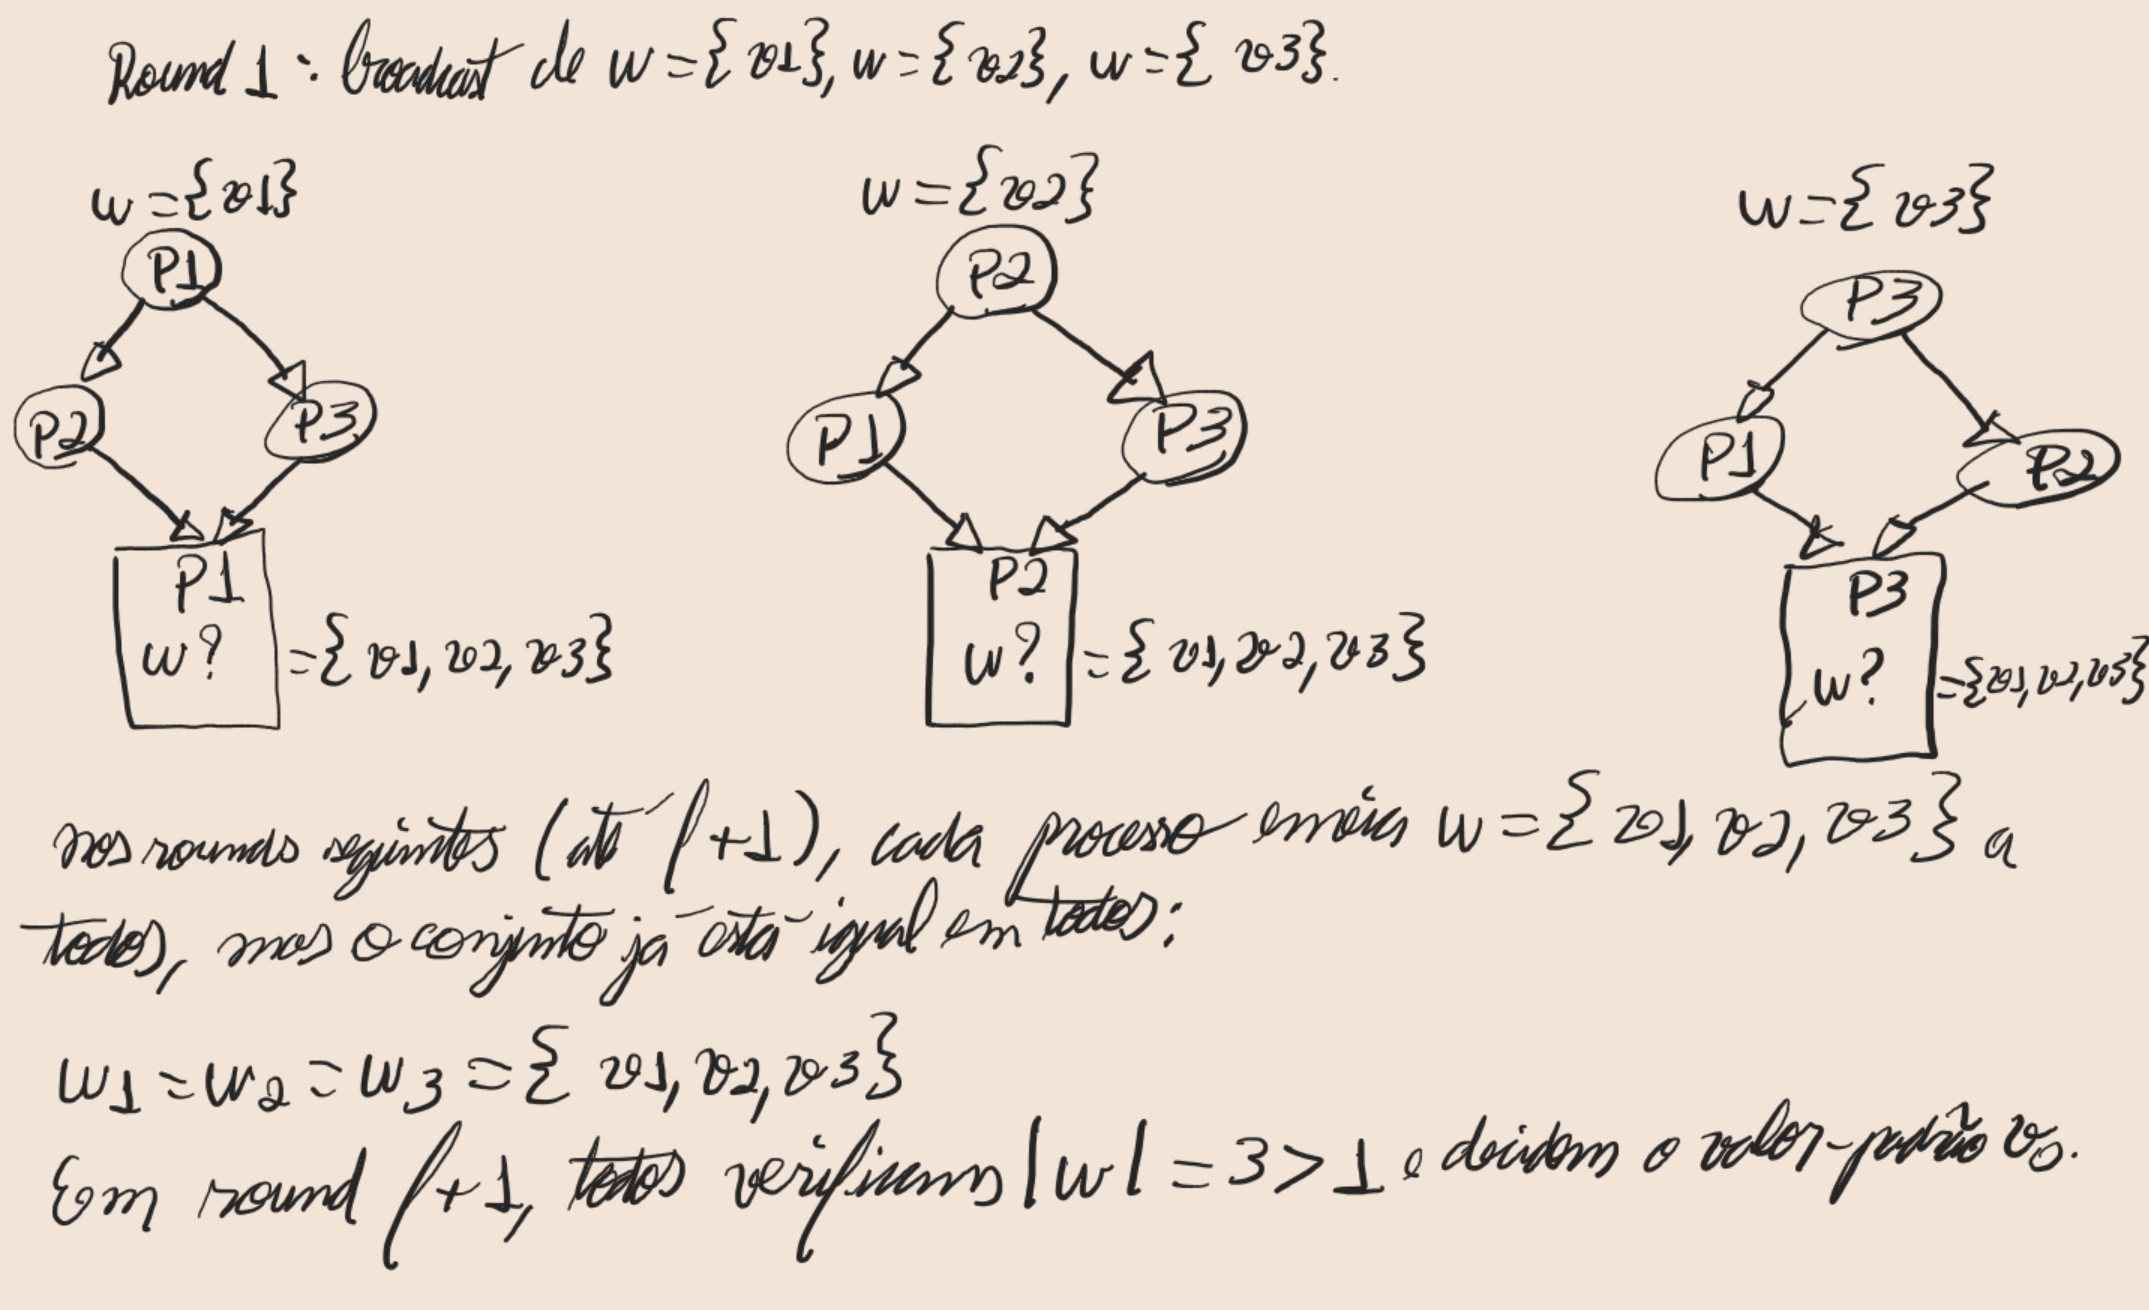 Round 1: broadcast de w={v1}, w={v2}, w={v3}.
w={v1}
w={v2}
w={v3}
P1
P2
P3
P2
P3
P1
P3
P1
P2
P1
w? ={v1,v2,v3}
P2
w? ={v1,v2,v3}
P3
w? ={v1,v2,v3}
nos rounds seguintes (até f+1), cada processo envia w={v1,v2,v3} a
todos, mas o conjunto já está igual em todos:
w1=w2=w3={v1,v2,v3}
Em round f+1, todos verificam |w|=3>1 e decidem o valor-padrão v0.